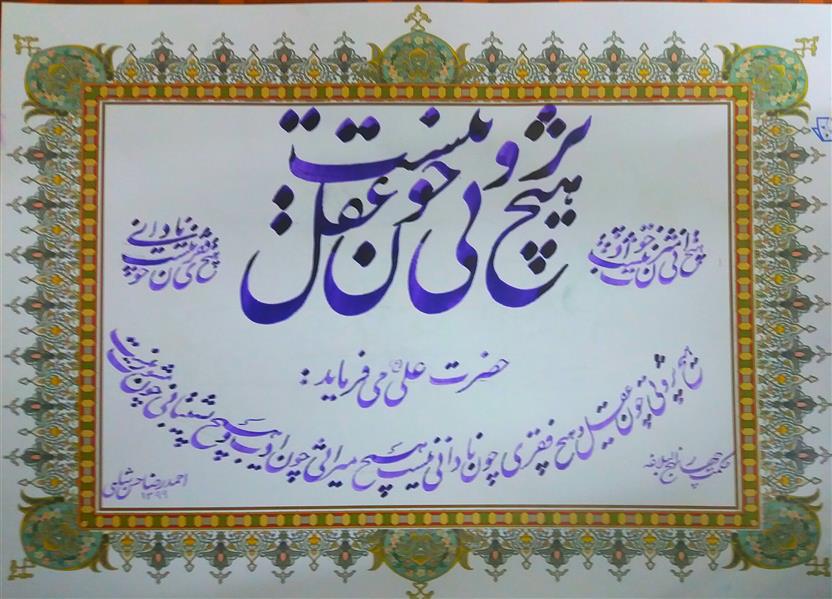 هیچ ثروتی چون عقل نیست
هیچ فقری چون نادانی نیست
حضرت علی (ع) می فرماید :
هیچ ثروتی چون عقل و هیچ فقری چون نادانی نیست هیچ میراثی چون ادب و هیچ پشتیبانی چون مشورت نیست
حکمت نهج البلاغه
احمدرضا حسن شاهی
۱۳۹۹